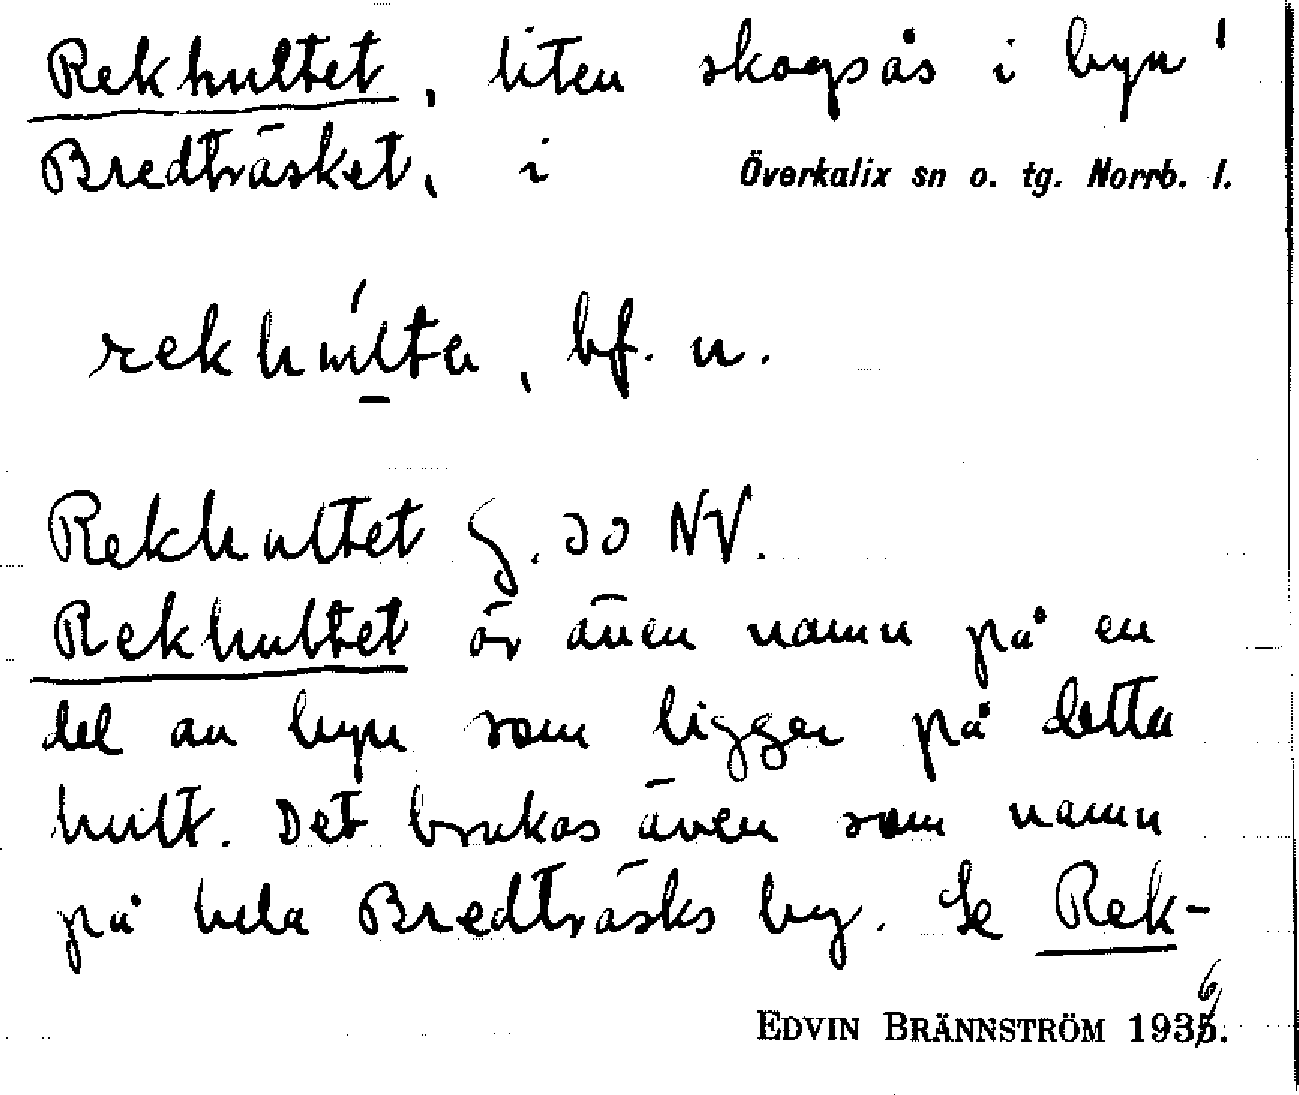 Rekhultet, liten skogsås i byn
Bredträsket, i Överkalix sn o. tg. Norrb. l.
bf. n.
Rekhultet g. 30 NV.
Rekhultet är även namn på en
del av byn som ligger på detta
hult. Det brukas även som namn
på hela Bredträsks by. Se Rek-
EDVIN BRÄNNSTRÖM 1936.